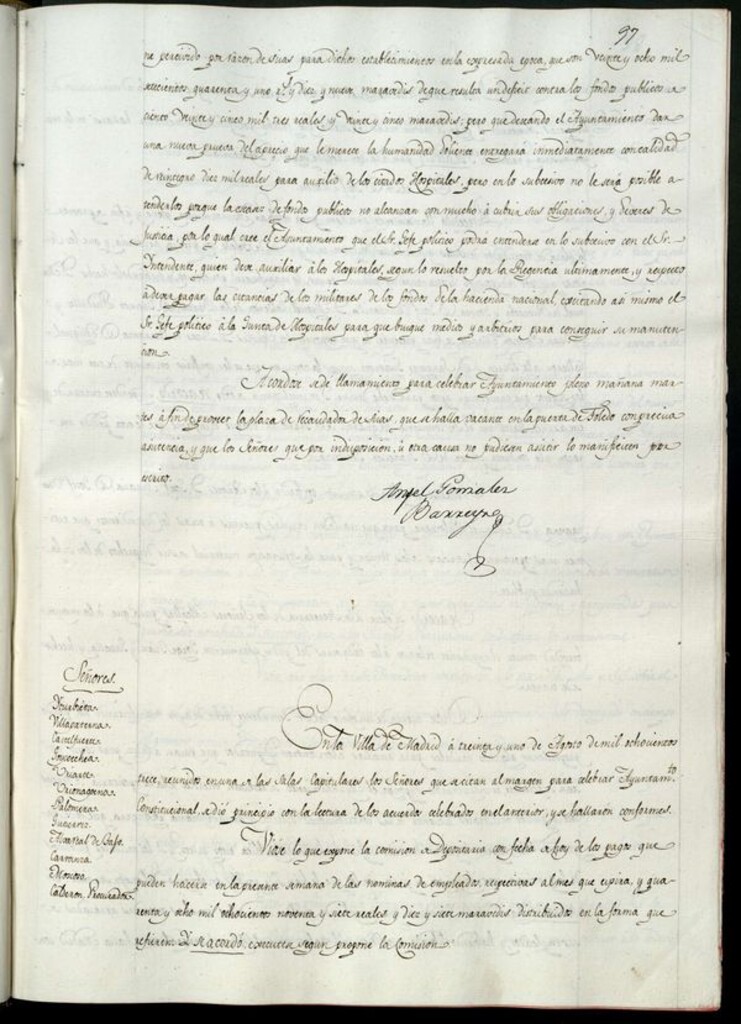 97
ne percivido por razon de sisas para dichos establecimientos en la expresada epoca, que son veinte y ocho mil
setecientos quarenta y uno rs. y diez y nueve maravedis de que resulta un deficit contra los fondos publicos de
ciento veinte y cinco mil tres reales y veinte y cinco maravedis; pero que deseando el Ayuntamiento dar
una nueva prueva del aprecio que le merece la humanidad doliente entregará inmediatamente con calidad
de reintegro diez mil reales para auxilio de los citados Hospitales, pero en lo subcesivo no le será posible a-
tenderlos porque la escasez de fondos publicos no alcanzan con mucho à cubrir sus obligaciones, y deveres de
Justicia, por lo qual cree el Ayuntamiento que el Sr. Gefe politico podrá entenderse en lo subcesivo con el Sr.
Intendente, quien deve auxiliar à los Hospitales, segun lo resuelto por la Regencia ultimamente, y respecto
à dever pagar las estancias de los militares de los fondos de la hacienda nacional, excitando asi mismo el
Sr. Gefe politico à la Junta de Hospitales para que busque medios y arbitrios para conseguir su manuten-
cion.
Acordose se dé llamamiento para celebrar Ayuntamiento el dia mañana mar-
tes à fin de proveer la plaza de Recaudador de sisas, que se halla vacante en la puerta de Toledo con precisa
asistencia, y que los Señores que por indisposicion, ù otra causa no pudiesen asistir lo manifiesten por
escrito.
Angel Gonzalez
Barreyro
Señores.
Villapaterna
Castelfuerte
Goycoechea
Uriarte
Urionagoena
Palomera
Gutierrez
Carranza
Calderon Procurador
En la Villa de Madrid à treinta y uno de Agosto de mil ochocientos
trece, reunidos en una de las Salas Capitulares los Señores que se citan al margen para celebrar Ayuntamto.
Constitucional, se dió principio con la lectura de los acuerdos celebrados en el anterior, y se hallaron conformes.
Viose lo que expone la comision de Depositaria con fecha de hoy de los pagos que
pueden hacerse en la presente semana de las nominas de empleados, respectivas al mes que espira, y qua-
renta y ocho mil ochocientos noventa y siete reales y diez y siete maravedis distribuidos en la forma que
refieren. Y se acordó, executese segun propone la Comision.